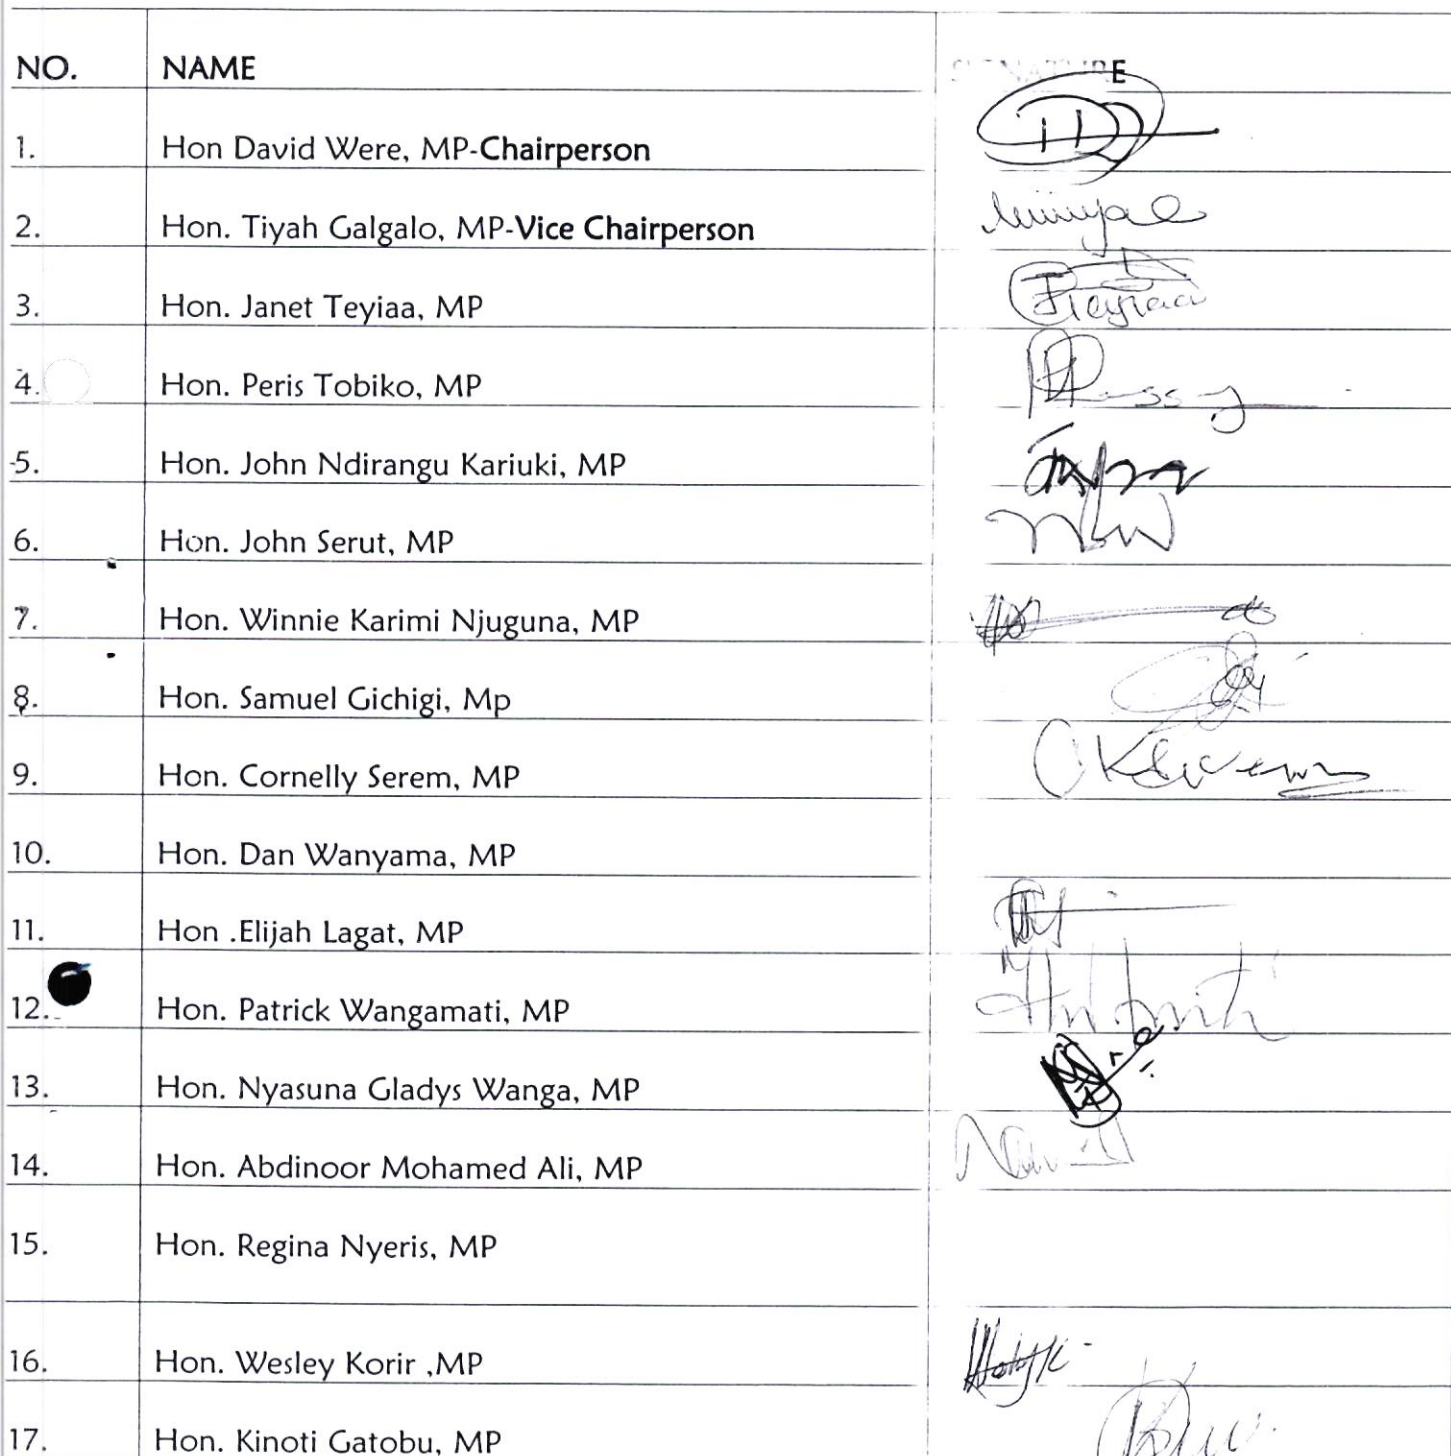 NO. NAME SIGNATURE
1. Hon David Were, MP-Chairperson
2. Hon. Tiyah Galgalo, MP-Vice Chairperson
3. Hon. Janet Teyiaa, MP
4. Hon. Peris Tobiko, MP
5. Hon. John Ndirangu Kariuki, MP
6. Hon. John Serut, MP
7. Hon. Winnie Karimi Njuguna, MP
8. Hon. Samuel Gichigi, Mp
9. Hon. Cornelly Serem, MP
10. Hon. Dan Wanyama, MP
11. Hon .Elijah Lagat, MP
12. Hon. Patrick Wangamati, MP
13. Hon. Nyasuna Gladys Wanga, MP
14. Hon. Abdinoor Mohamed Ali, MP
15. Hon. Regina Nyeris, MP
16. Hon. Wesley Korir ,MP
17. Hon. Kinoti Gatobu, MP